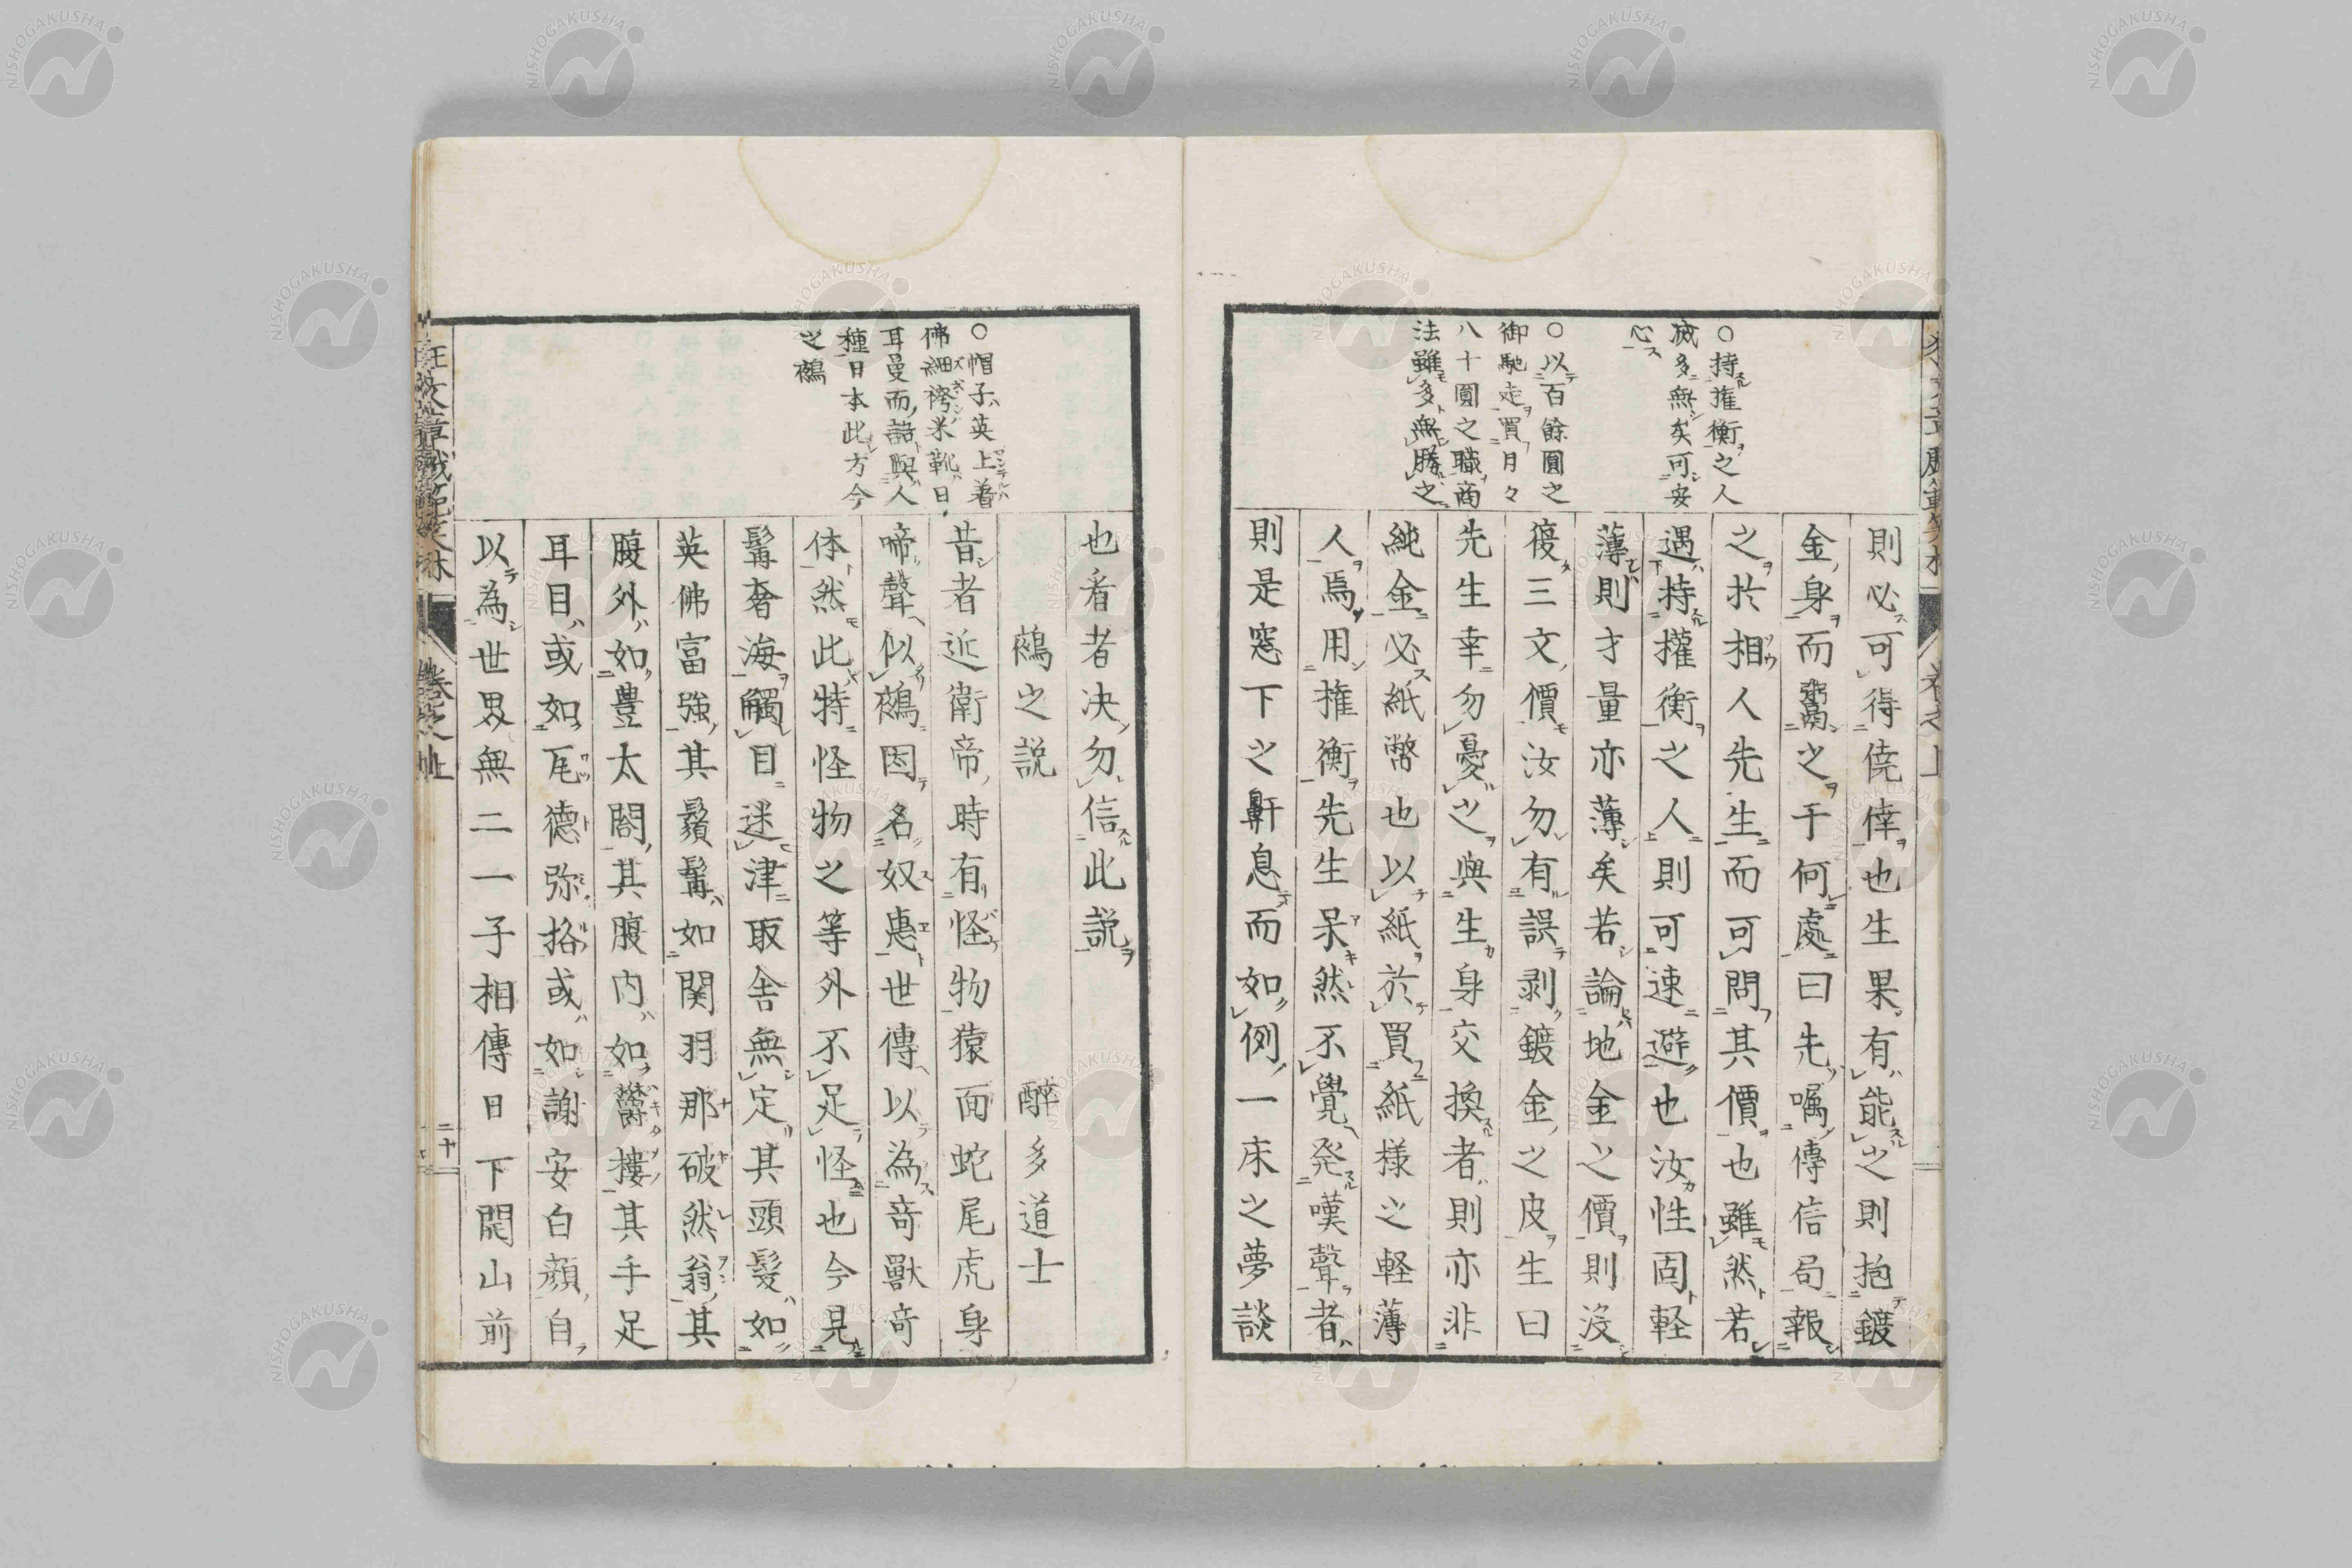 ○持権衡之人
滅多無矣可安
心
○以百餘圓之
御馳走買月々
八十圓之職商
法雖多無勝之
則必可得僥倖也生果有能之則抱鍍
金身而鬻之于何處曰先嘱傳信局報
之於相人先生而可問其價也雖然若
遇持權衡之人則可速避也汝性固軽
薄則才量亦薄矣若論地金之價則没
復三文價汝勿有誤剥鍍金之皮生曰
先生幸勿憂之與生身交換者則亦非
純金必紙幣也以紙於買紙様之軽薄
人焉用権衡先生呆然不覺発嘆聲者
則是窓下之鼾息而如例一床之夢談
○帽子英上着
佛細袴米靴日
耳曼而諾與人
種日本此方今
之鵺
也看者决勿信此説
鵺之説 醉多道士
昔者近衛帝時有怪物猿面蛇尾虎身
啼聲似鵺因名奴惠世傳以為奇獸奇
体然此特怪物之等外不足怪也今見
髯奢海觸目迷津取舎無定其頭髮如
英佛富強其鬚髯如関羽那破然翁其
腹外如豊太閤其腹内如欝摟其手足
耳目或如瓦德弥挌或如謝安白顔自
以為世界無二一子相傳日下開山前
卷之上
二十